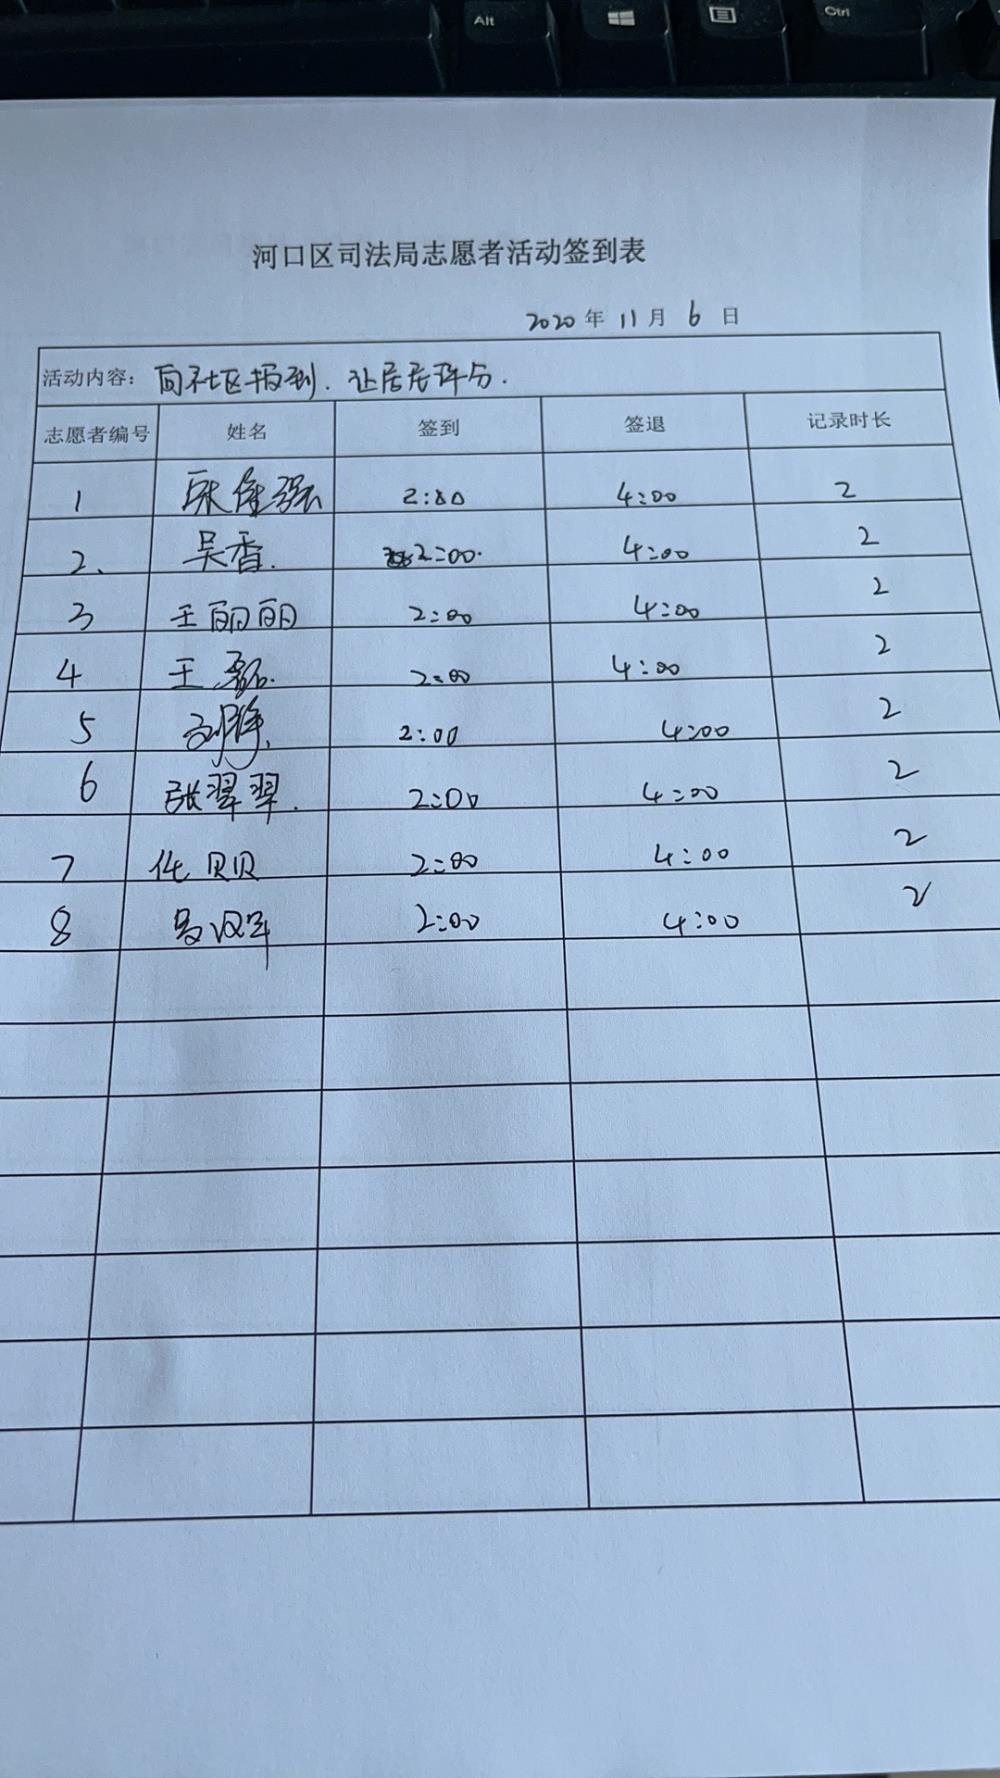 Alt
Ctrl
河口区司法局志愿者活动签到表
2020 年 11 月 6 日
活动内容: 向社区报到. 让居民评分.
志愿者编号 姓名 签到 签退 记录时长
1 2:00 4:00 2
2、 吴香. 2:00. 4:00 2
3 王丽丽 2:00 4:00 2
4 王磊. 2:00 4:00 2
5 2:00 4:00 2
6 张翠翠. 2:00 4:00 2
7 任贝贝 2:00 4:00 2
8 2:00 4:00 2